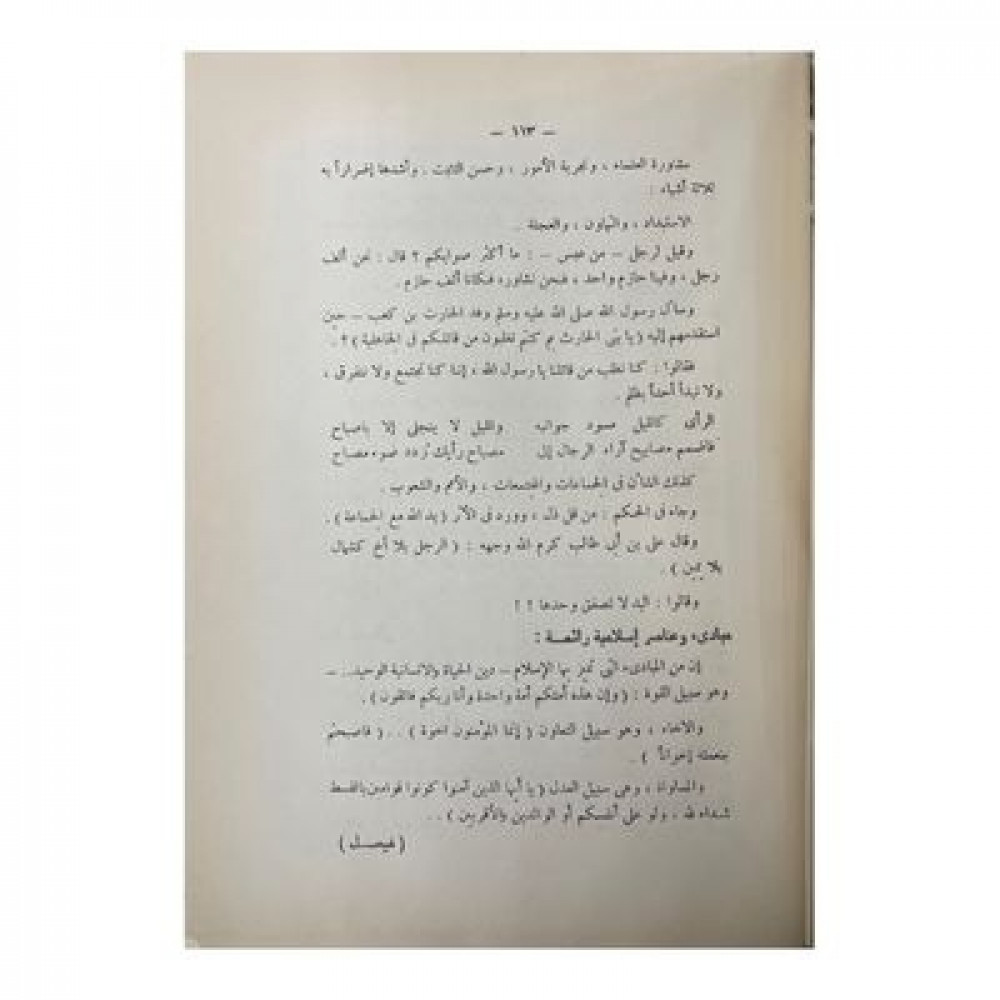 — ١١٣ —
مشاورة العلماء ، وتجربة الأمور ، وحسن التثبت . وأشدها إضراراً به
ثلاثة أشياء :
الاستبداد ، والتهاون ، والعجلة .
وقيل لرجل — من عبس — : ما أكثر صوابكم ؟ قال : نحن ألف
رجل ، وفينا حازم واحد ، فنحن نشاوره فكأننا ألف حازم .
وسأل رسول الله صلى الله عليه وسلم وفد الحارث بن كعب — حين
استقدمهم إليه ( يا بنى الحارث بم كنتم تغلبون من قاتلكم فى الجاهلية ) ؟ .
فقالوا : كنا نغلب من قاتلنا يا رسول الله ، إننا كنا نجتمع ولا نتفرق ،
ولا نبدأ أحداً بظلم .
الرأى كالليل مسود جوانبه والليل لا ينجلى إلا باصباح
فاضمم مصابيح آراء الرجال إلى مصباح رأيك تزدد ضوء مصباح
كذلك الشأن فى الجماعات والمجتمعات ، والأمم والشعوب .
وجاء فى الحكم : من قل ذل ، وورد فى الأثر ( يد الله مع الجماعة ) .
وقال على بن أبى طالب كرم الله وجهه : ( الرجل بلا أخ كشمال
بلا يمين ) .
وقالوا : اليد لا تصفق وحدها ! !
مبادىء وعناصر إسلامية رائعـة :
إن من المبادىء التى تميز بها الإسلام — دين الحياة والانسانية الوحيد.. —
وهو سبيل القوة : ( وإن هذه أمتكم أمة واحدة وأنا ربكم فاتقون ) .
والاخاء ، وهو سبيل التعاون ( إنما المؤمنون اخوة ) . . ( فأصبحتم
بنعمته إخواناً ) .
والمساواة ، وهى سبيل العدل ( يا أيها الذين آمنوا كونوا قوامين بالقسط
شهداء لله ، ولو على أنفسكم أو الوالدين والأقربين ) . .
( فيصـل )